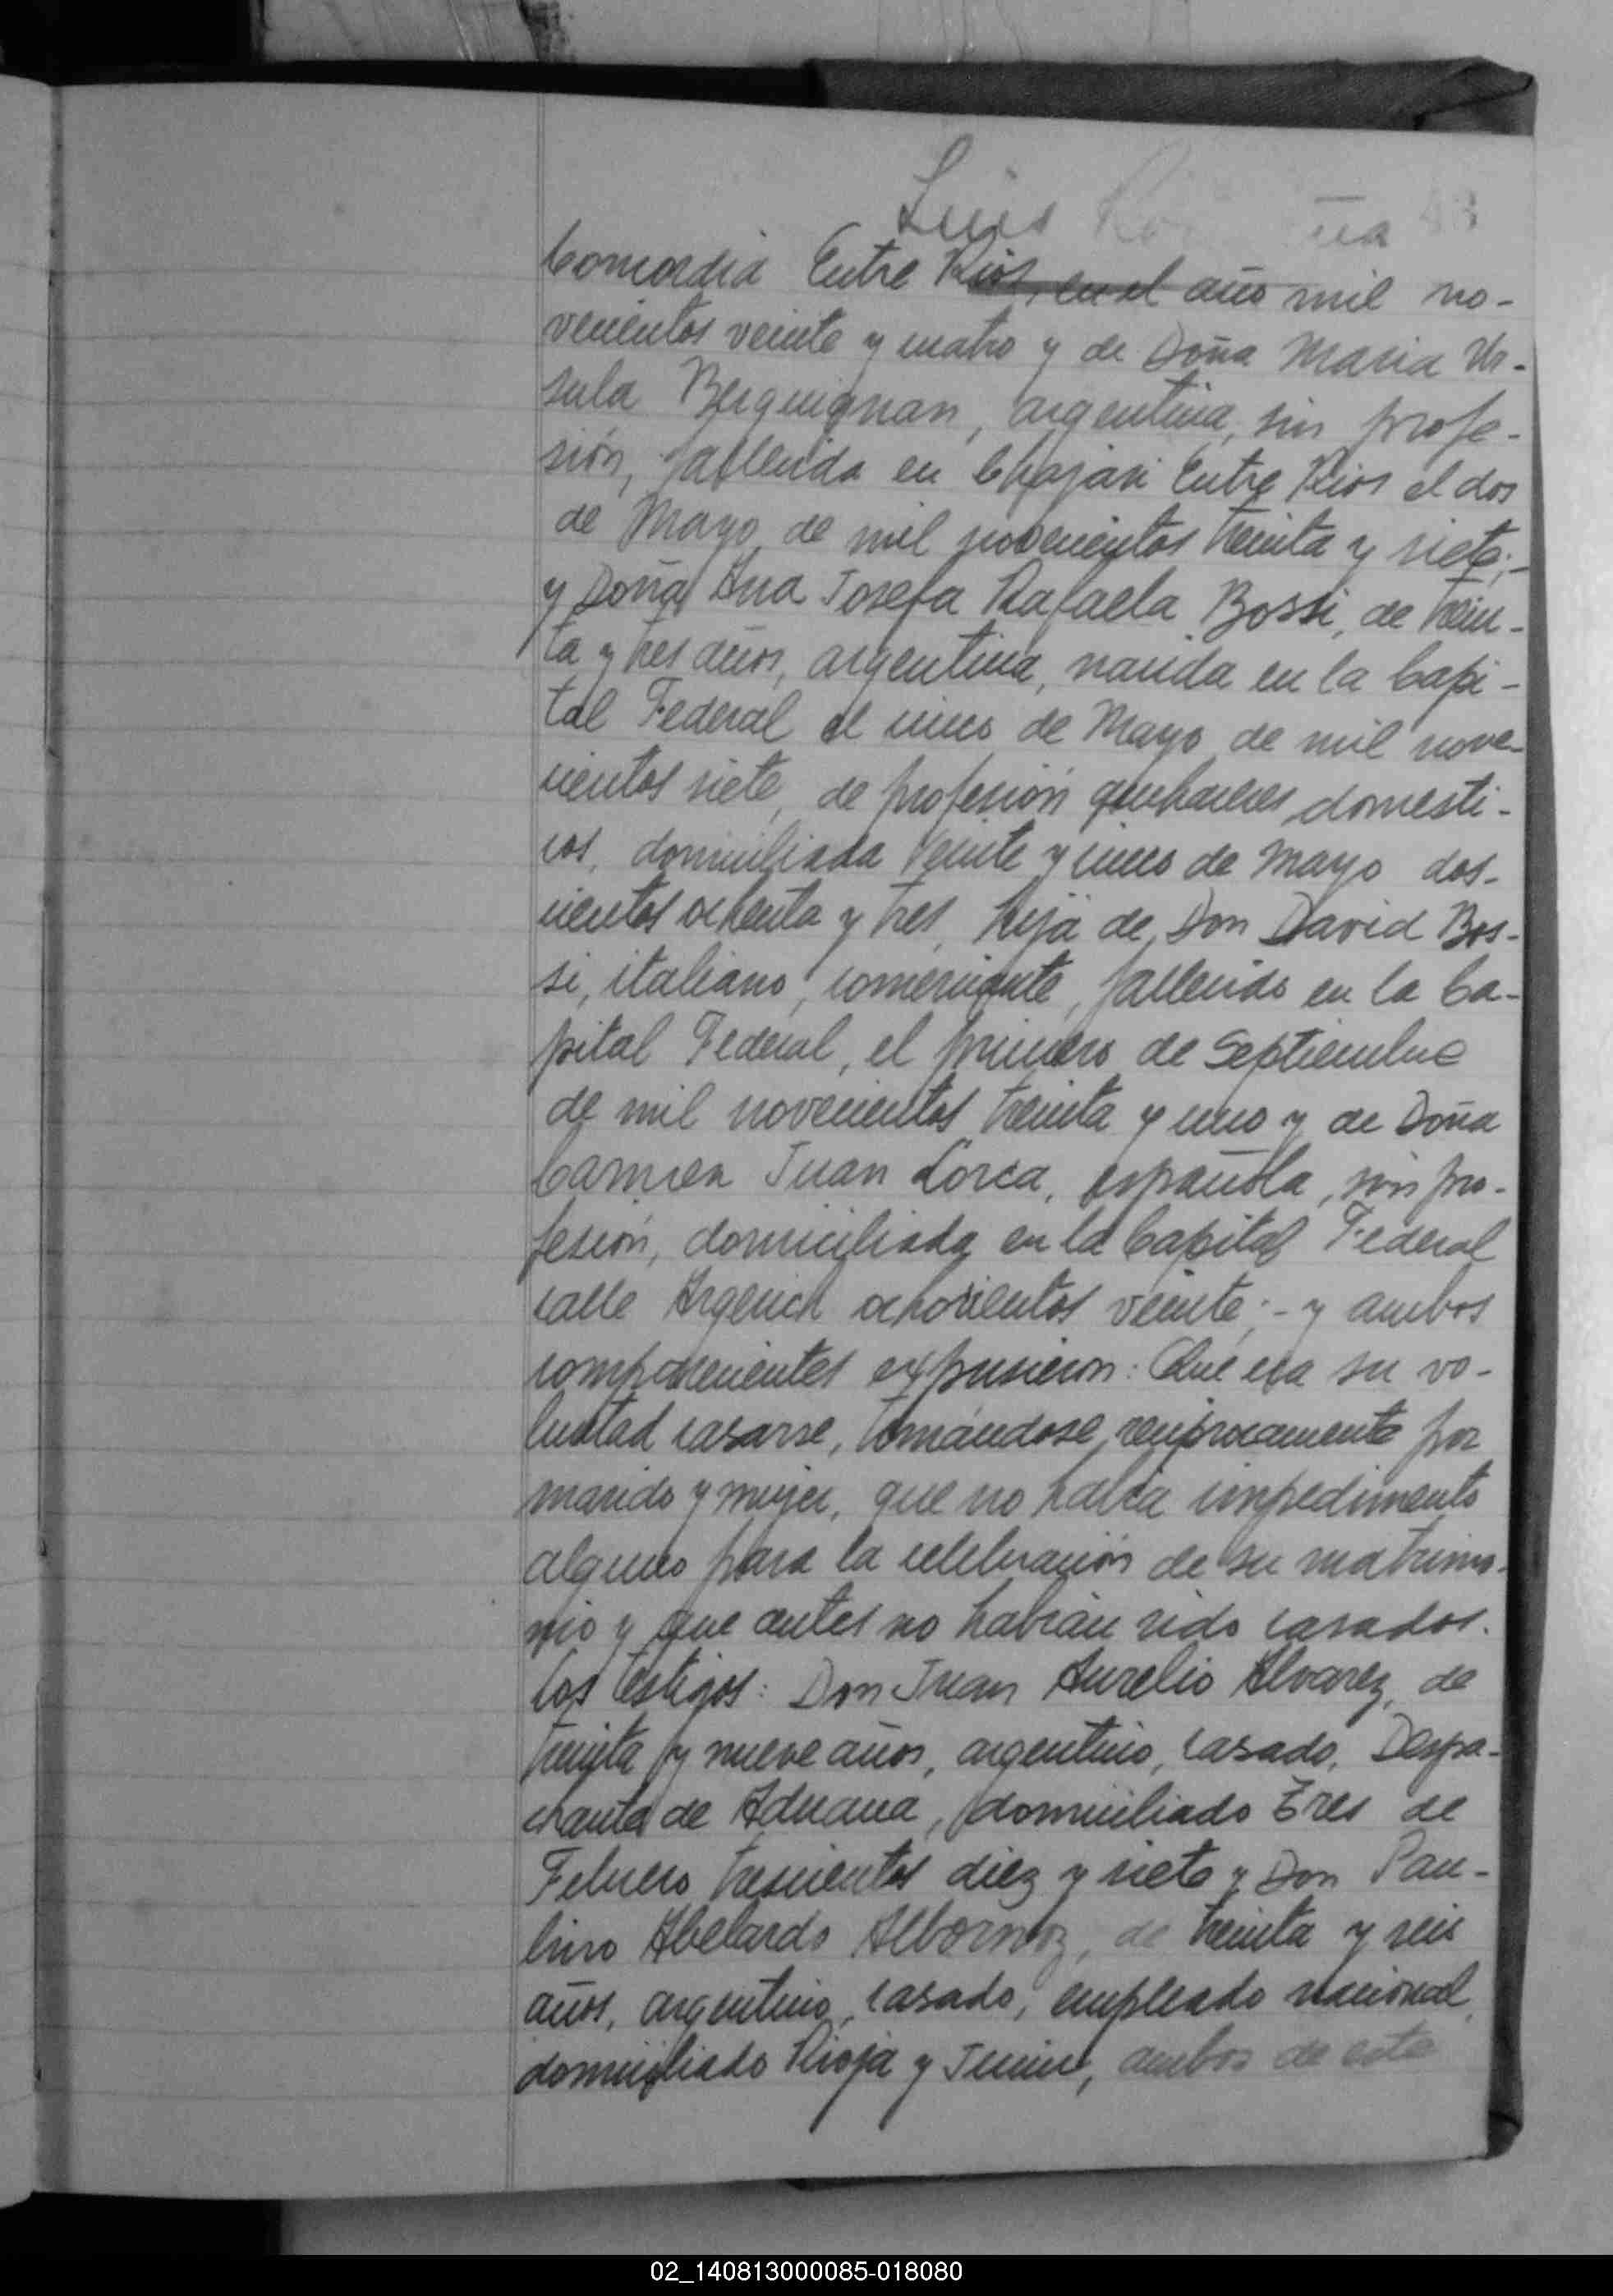 Luis
Concordia Entre Rios, en el año mil no-
vecientos veinte y cuatro y de Doña Maria Ur-
sula Berguignan, argentina, sin profe-
sión, fallecida en Chajari Entre Rios el dos
de Mayo de mil novecientos treinta y siete;-
y Doña Ana Josefa Rafaela Bossi, de trein-
ta y tres años, argentina, nacida en la Capi-
tal Federal el cinco de Mayo de mil nove-
cientos siete, de profesión quehaceres domesti-
cos, domiciliada Veinte y cinco de Mayo dos-
cientos ochenta y tres, hija de Don David Bos-
si, italiano, comerciante, fallecido en la Ca-
pital Federal, el primero de Septiembre
de mil novecientos treinta y uno y de Doña
Carmen Juan Lorca, española, sin pro-
fesión, domiciliada en la Capital Federal
calle Argerich ochocientos veinte;- y ambos
comparecientes expusieron: Que era su vo-
luntad casarse, tomándose reciprocamente por
marido y mujer, que no había impedimento
alguno para la celebración de su matrimo-
nio y que antes no habían sido casados.
Los testigos: Don Juan Aurelio Alvarez, de
treinta y nueve años, argentino, casado, Despa-
chante de Aduana, domiciliado Tres de
Febrero trescientos diez y siete y Don Pau-
lino Abelardo Albornoz, de treinta y seis
años, argentino, casado, empleado nacional,
domiciliado Rioja y Junin, ambos de esta
02_140813000085-018080